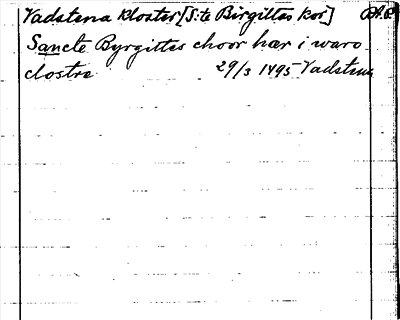 Vadstena kloster [S:te Birgittas kor] O.A.P.
Sancte Byrgittes choor hær i waro
clostre 29/3 1495 Vadstena